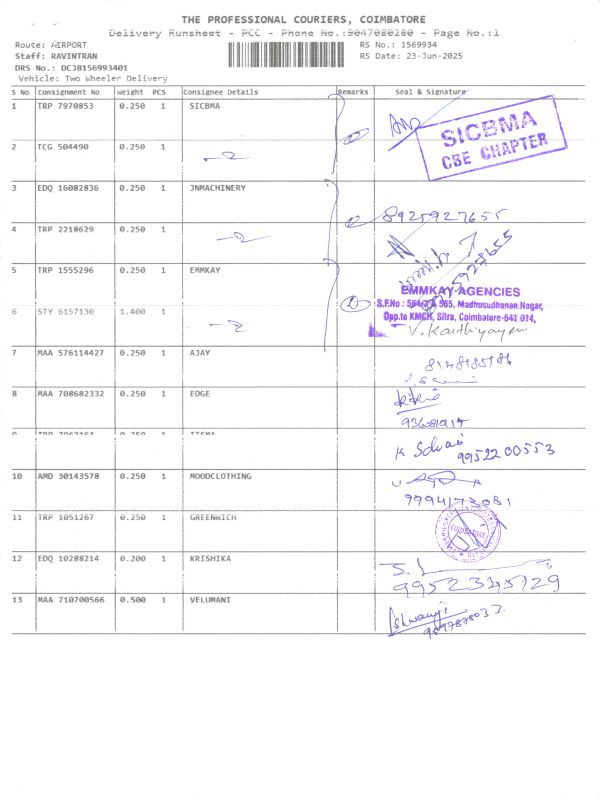 THE PROFESSIONAL COURIERS, COIMBATORE
Delivery Runsheet - PCC - Phone No.:9047080280 - Page No.:1
Route: AIRPORT
RS No.: 1569934
Staff: RAVINTRAN
RS Date: 23-Jun-2025
DRS No.: DCJB156993401
Vehicle: Two Wheeler Delivery
S No Consignment No Weight PCS Consignee Details Remarks Seal & Signature
1 TRP 7970853 0.250 1 SICBMA
SICBMA
CBE CHAPTER
2 TCG 504490 0.250 1
3 EDQ 16082836 0.250 1 JNMACHINERY
8925927655
4 TRP 2218629 0.250 1
5 TRP 1555296 0.250 1 EMMKAY
EMMKAY AGENCIES
S.F.No : 565, Madhusudhanan Nagar,
6 STY 6157130 1.400 1
Opp.to KMCH, Sitra, Coimbatore-641 014.
V. Karthiyayeni
7 MAA 576114427 0.250 1 AJAY
8 MAA 708682332 0.250 1 EDGE
9 0.250 1
K Selvas
9952200553
10 AMD 30143578 0.250 1 MOODCLOTHING
9994173081
11 TRP 1051267 0.250 1 GREENWICH
COIMBATORE
12 EDQ 10288214 0.200 1 KRISHIKA
9952345129
13 MAA 710700566 0.500 1 VELUMANI